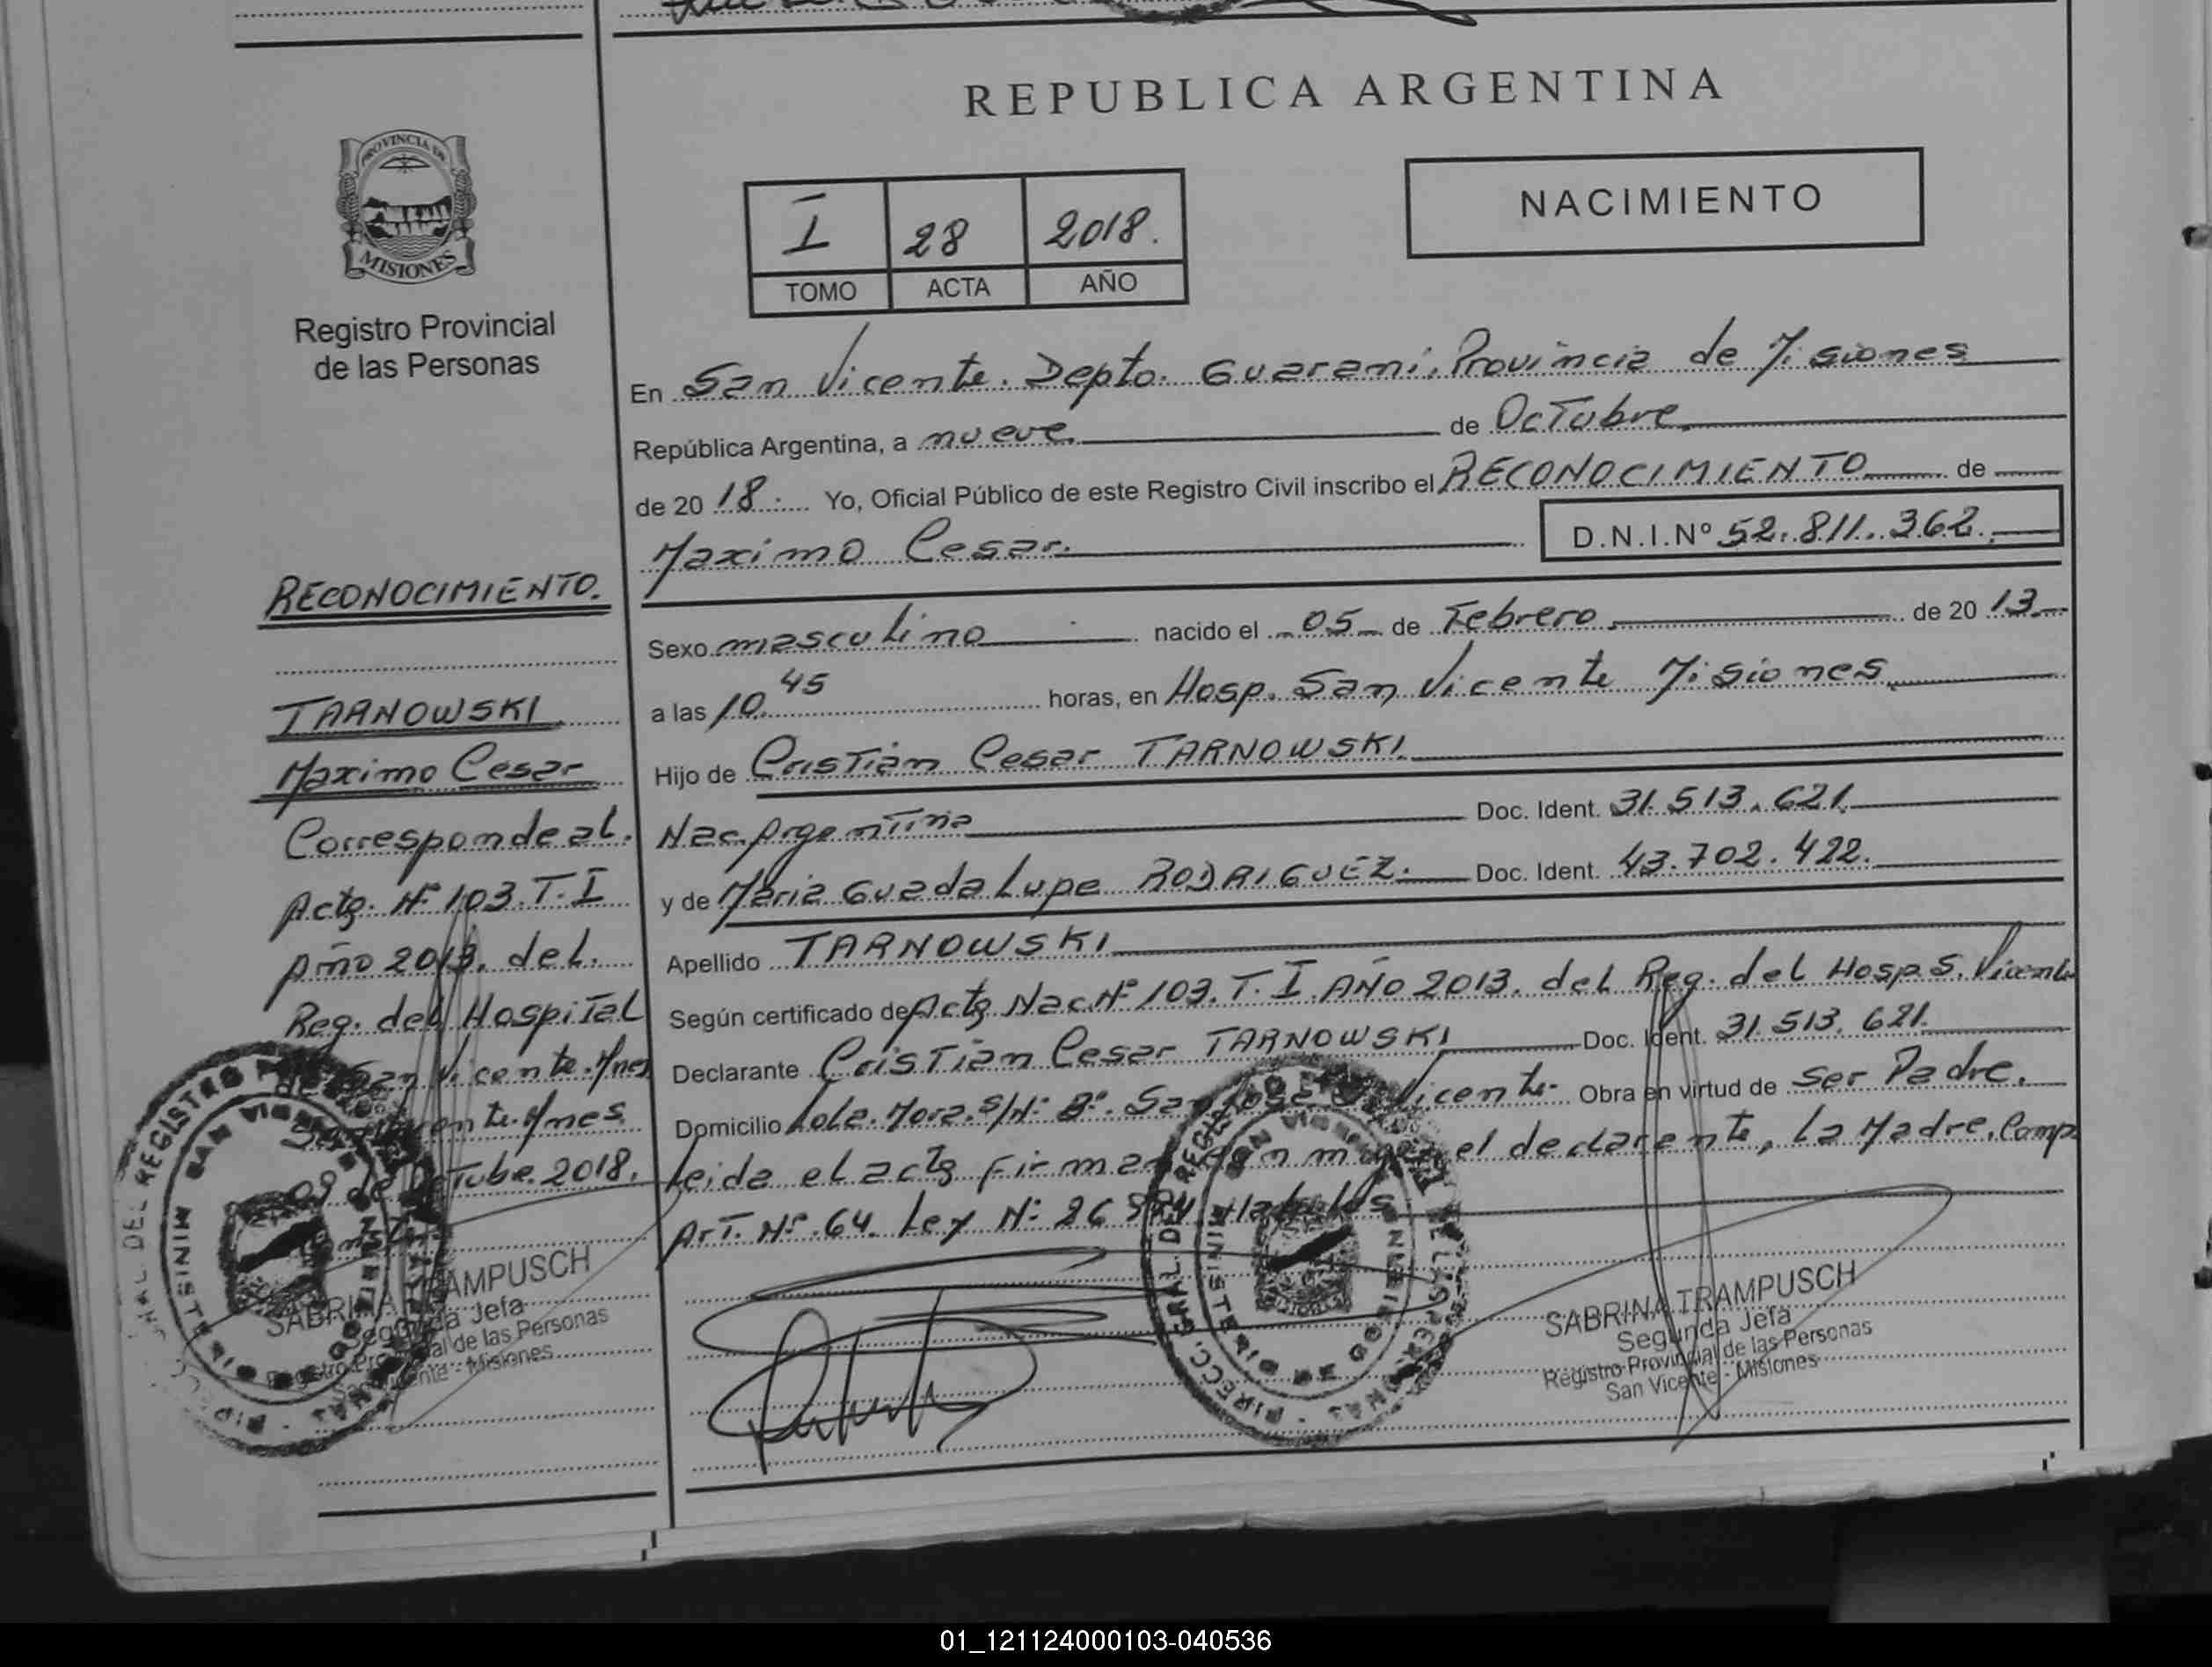 REPUBLICA ARGENTINA
PROVINCIA DE
MISIONES
Registro Provincial
de las Personas
I 28 2018.
TOMO ACTA AÑO
NACIMIENTO
En San Vicente. Depto. Guarani, Provincia de Misiones
República Argentina, a nueve. de Octubre.
de 2018. Yo, Oficial Público de este Registro Civil inscribo el RECONOCIMIENTO de
Maximo Cesar. D.N.I.Nº 52.811.362.
Sexo masculino nacido el 05 de Febrero. de 2013
a las 10.45 horas, en Hosp. San Vicente Misiones
Hijo de Cristian Cesar TARNOWSKI.
Nac. Argentina Doc. Ident. 31.513.621.
y de Maria Guadalupe RODRIGUEZ. Doc. Ident. 43.702.422.
Apellido TARNOWSKI
Según certificado de Acta Nac Nº 103. T. I AÑO 2013. del Reg. del Hosp. S. Vicente
Declarante Cristian Cesar TARNOWSKI Doc. Ident. 31.513.621.
Domicilio Cole. Mora. S/Nº Bº. San Jose S. Vicente Obra en virtud de Ser Padre.
Leida el acta firman con migo el declarante, La Madre, Comp.
Art. Nº 64 Ley Nº 26.994
SABRINA TRAMPUSCH
Segunda Jefa
Registro Provincial de las Personas
San Vicente - Misiones
RECONOCIMIENTO.
TARNOWSKI
Maximo Cesar
Corresponde al.
Acta. Nº 103. T. I
Año 2013. del.
Reg. del Hospital
de San Vicente. Mnes
San Vicente. Mnes.
09 de Octube. 2018.
SABRINA TRAMPUSCH
Segunda Jefa
Registro Provincial de las Personas
San Vicente - Misiones
01_121124000103-040536